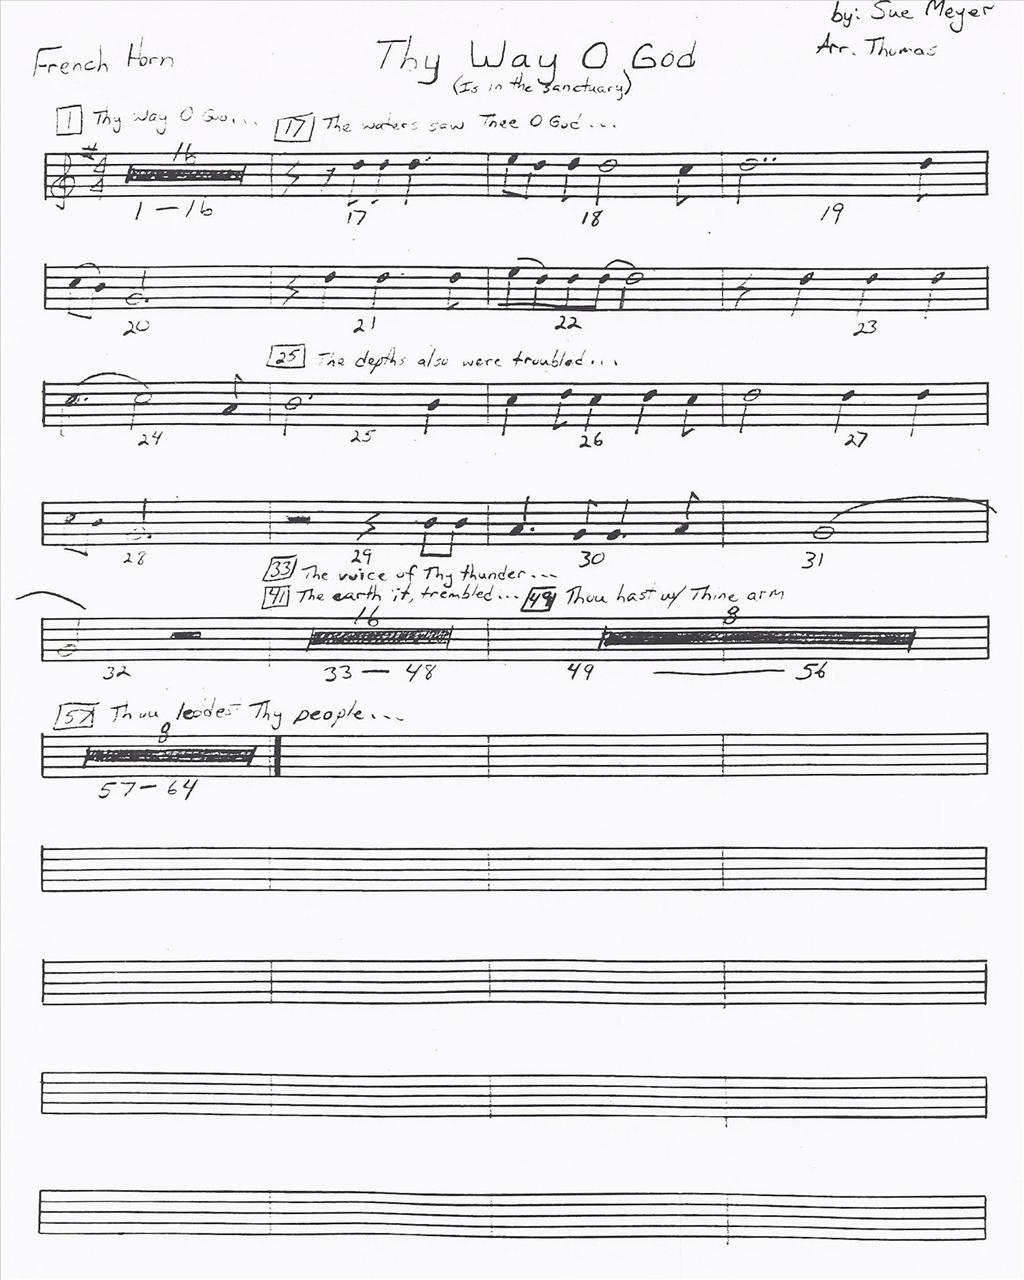 by: Sue Meyer
French Horn
Thy Way O God
Arr. Thomas
(Is in the sanctuary)
1 Thy Way O God... 17 The waters saw Thee O God...
16
1 — 16 17 18 19
20 21 22 23
25 The depths also were troubled...
24 25 26 27
28 29 30 31
33 The voice of Thy thunder...
41 The earth it, trembled... 49 Thou hast w/ Thine arm
16 8
32 33 — 48 49 — 56
57 Thou ledest Thy people...
8
57 — 64